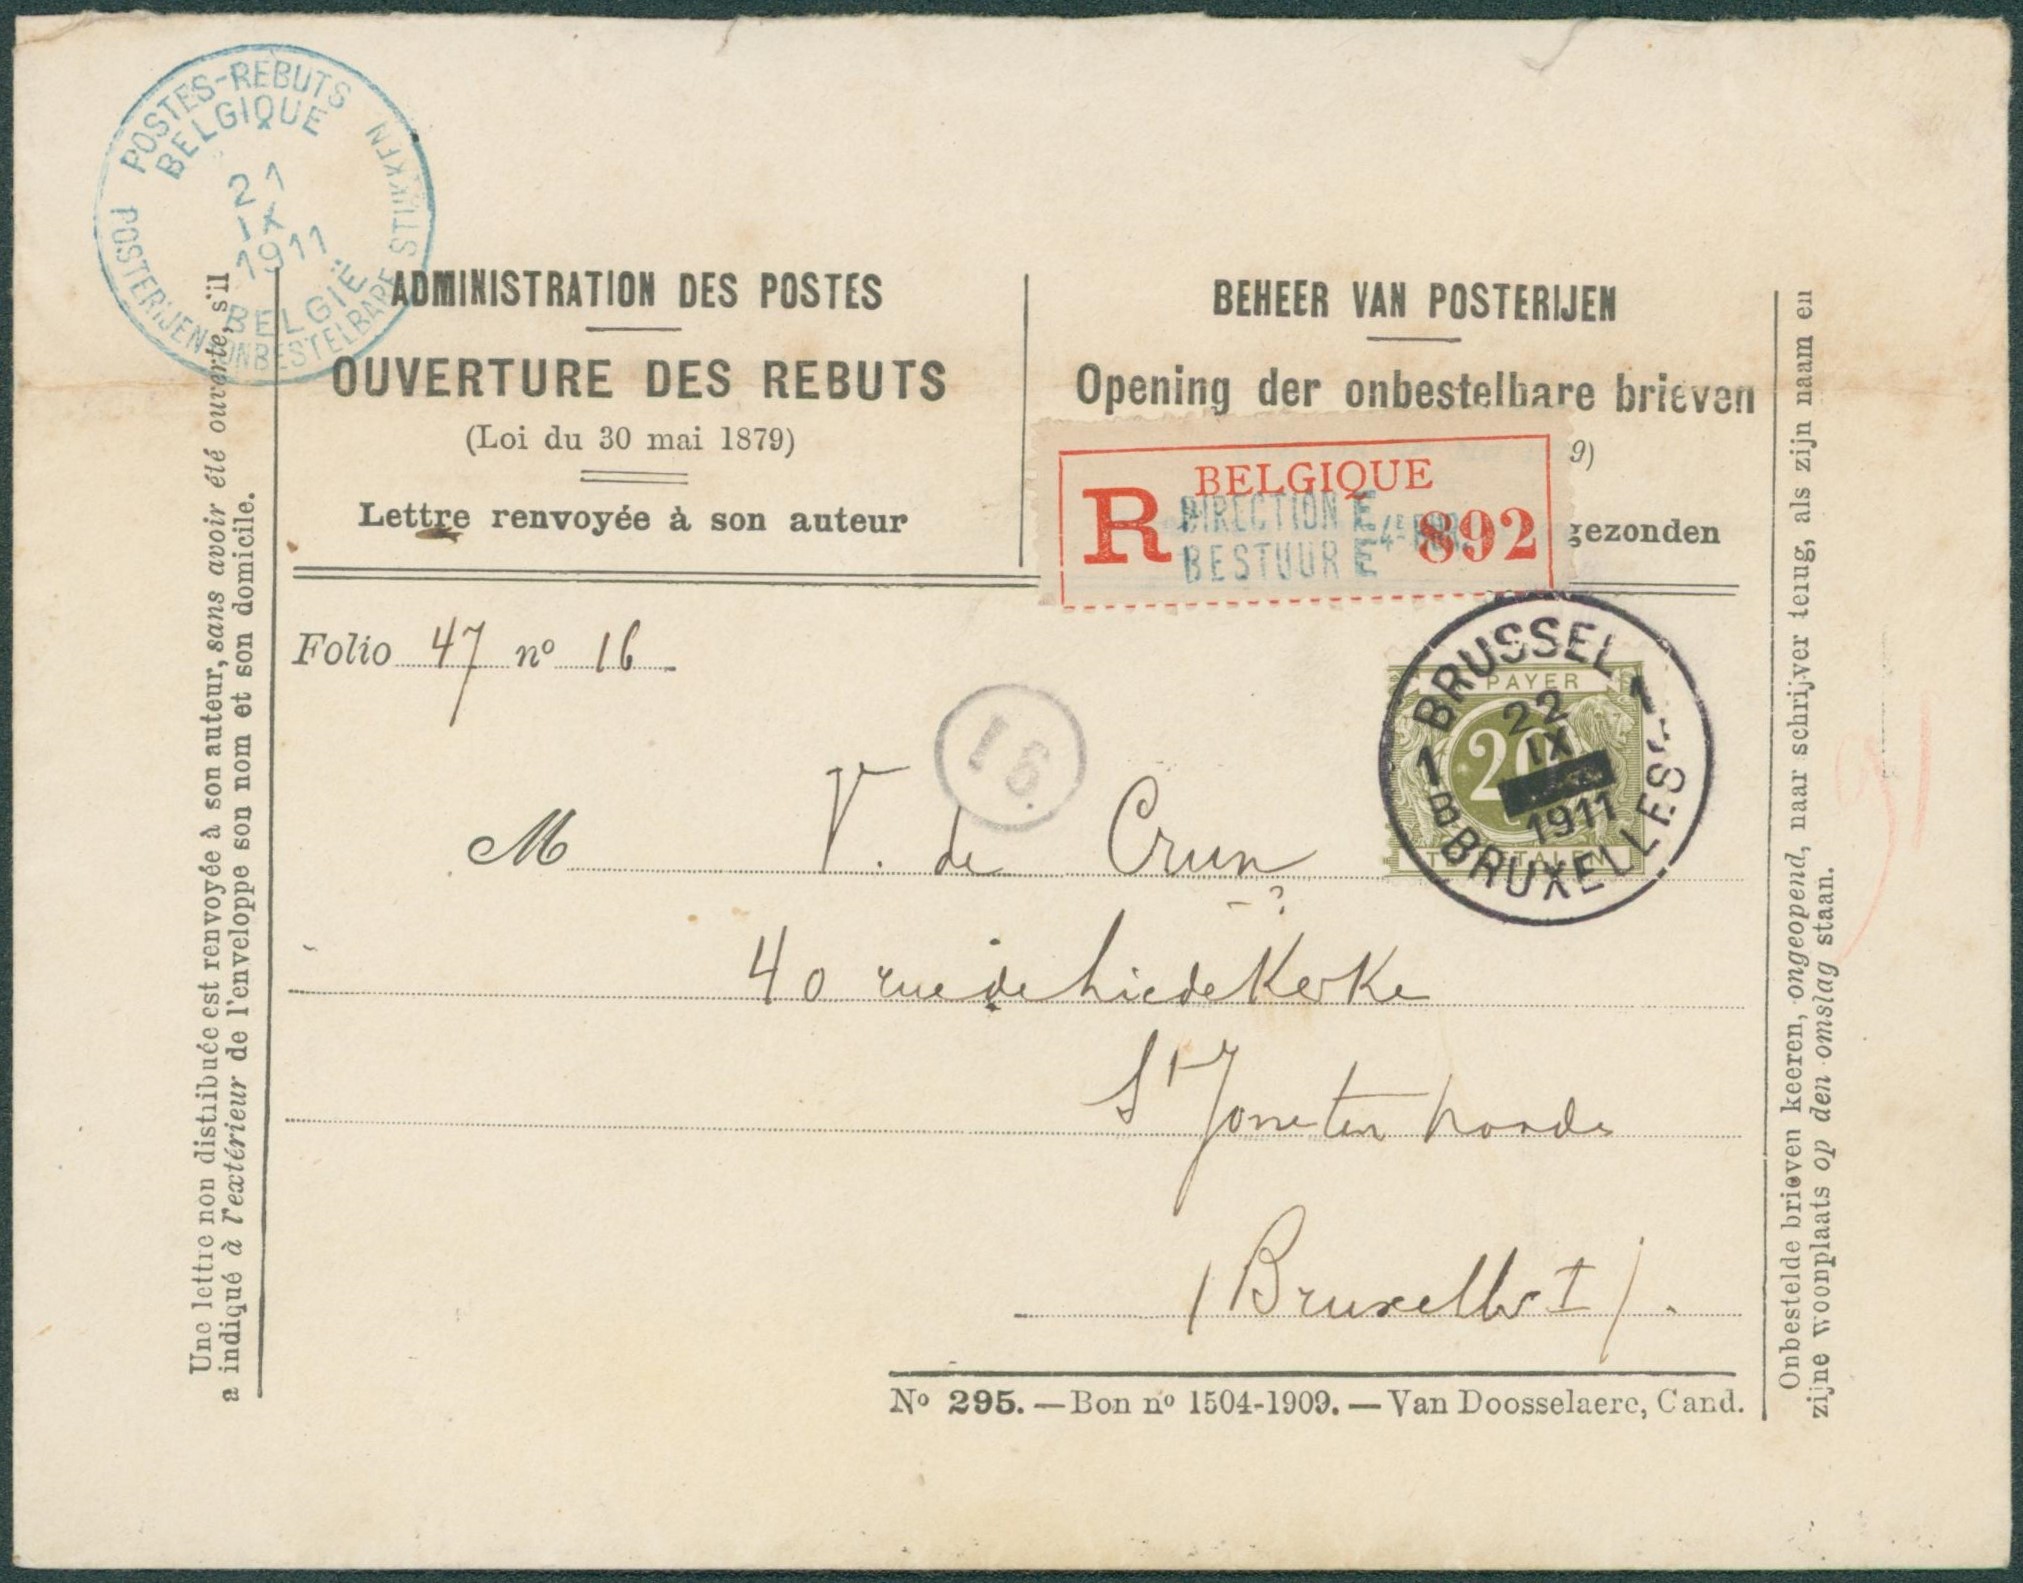 POSTES-REBUTS
BELGIQUE
21
IX
1911
BELGIË
POSTERIJEN-ONBESTELBARE STUKKEN
ADMINISTRATION DES POSTES
OUVERTURE DES REBUTS
(Loi du 30 mai 1879)
Lettre renvoyée à son auteur
BEHEER VAN POSTERIJEN
Opening der onbestelbare brieven
9)
gezonden
BELGIQUE
R 892
DIRECTION E
BESTUUR E
Folio 47 nº 16
16.
PAYER
20
BRUSSEL 1
22
IX
1911
1 B BRUXELLES
M V. de Crun
?
40 rue de Liedekerke
St Josse ten noode
(Bruxelles I).
Nº 295. — Bon nº 1504-1909. — Van Doosselaere, Gand.
Une lettre non distribuée est renvoyée à son auteur, sans avoir été ouverte, s'il
a indiqué à l'extérieur de l'enveloppe son nom et son domicile.
Onbestelde brieven keeren, ongeopend, naar schrijver terug, als zijn naam en
zijne woonplaats op den omslag staan.